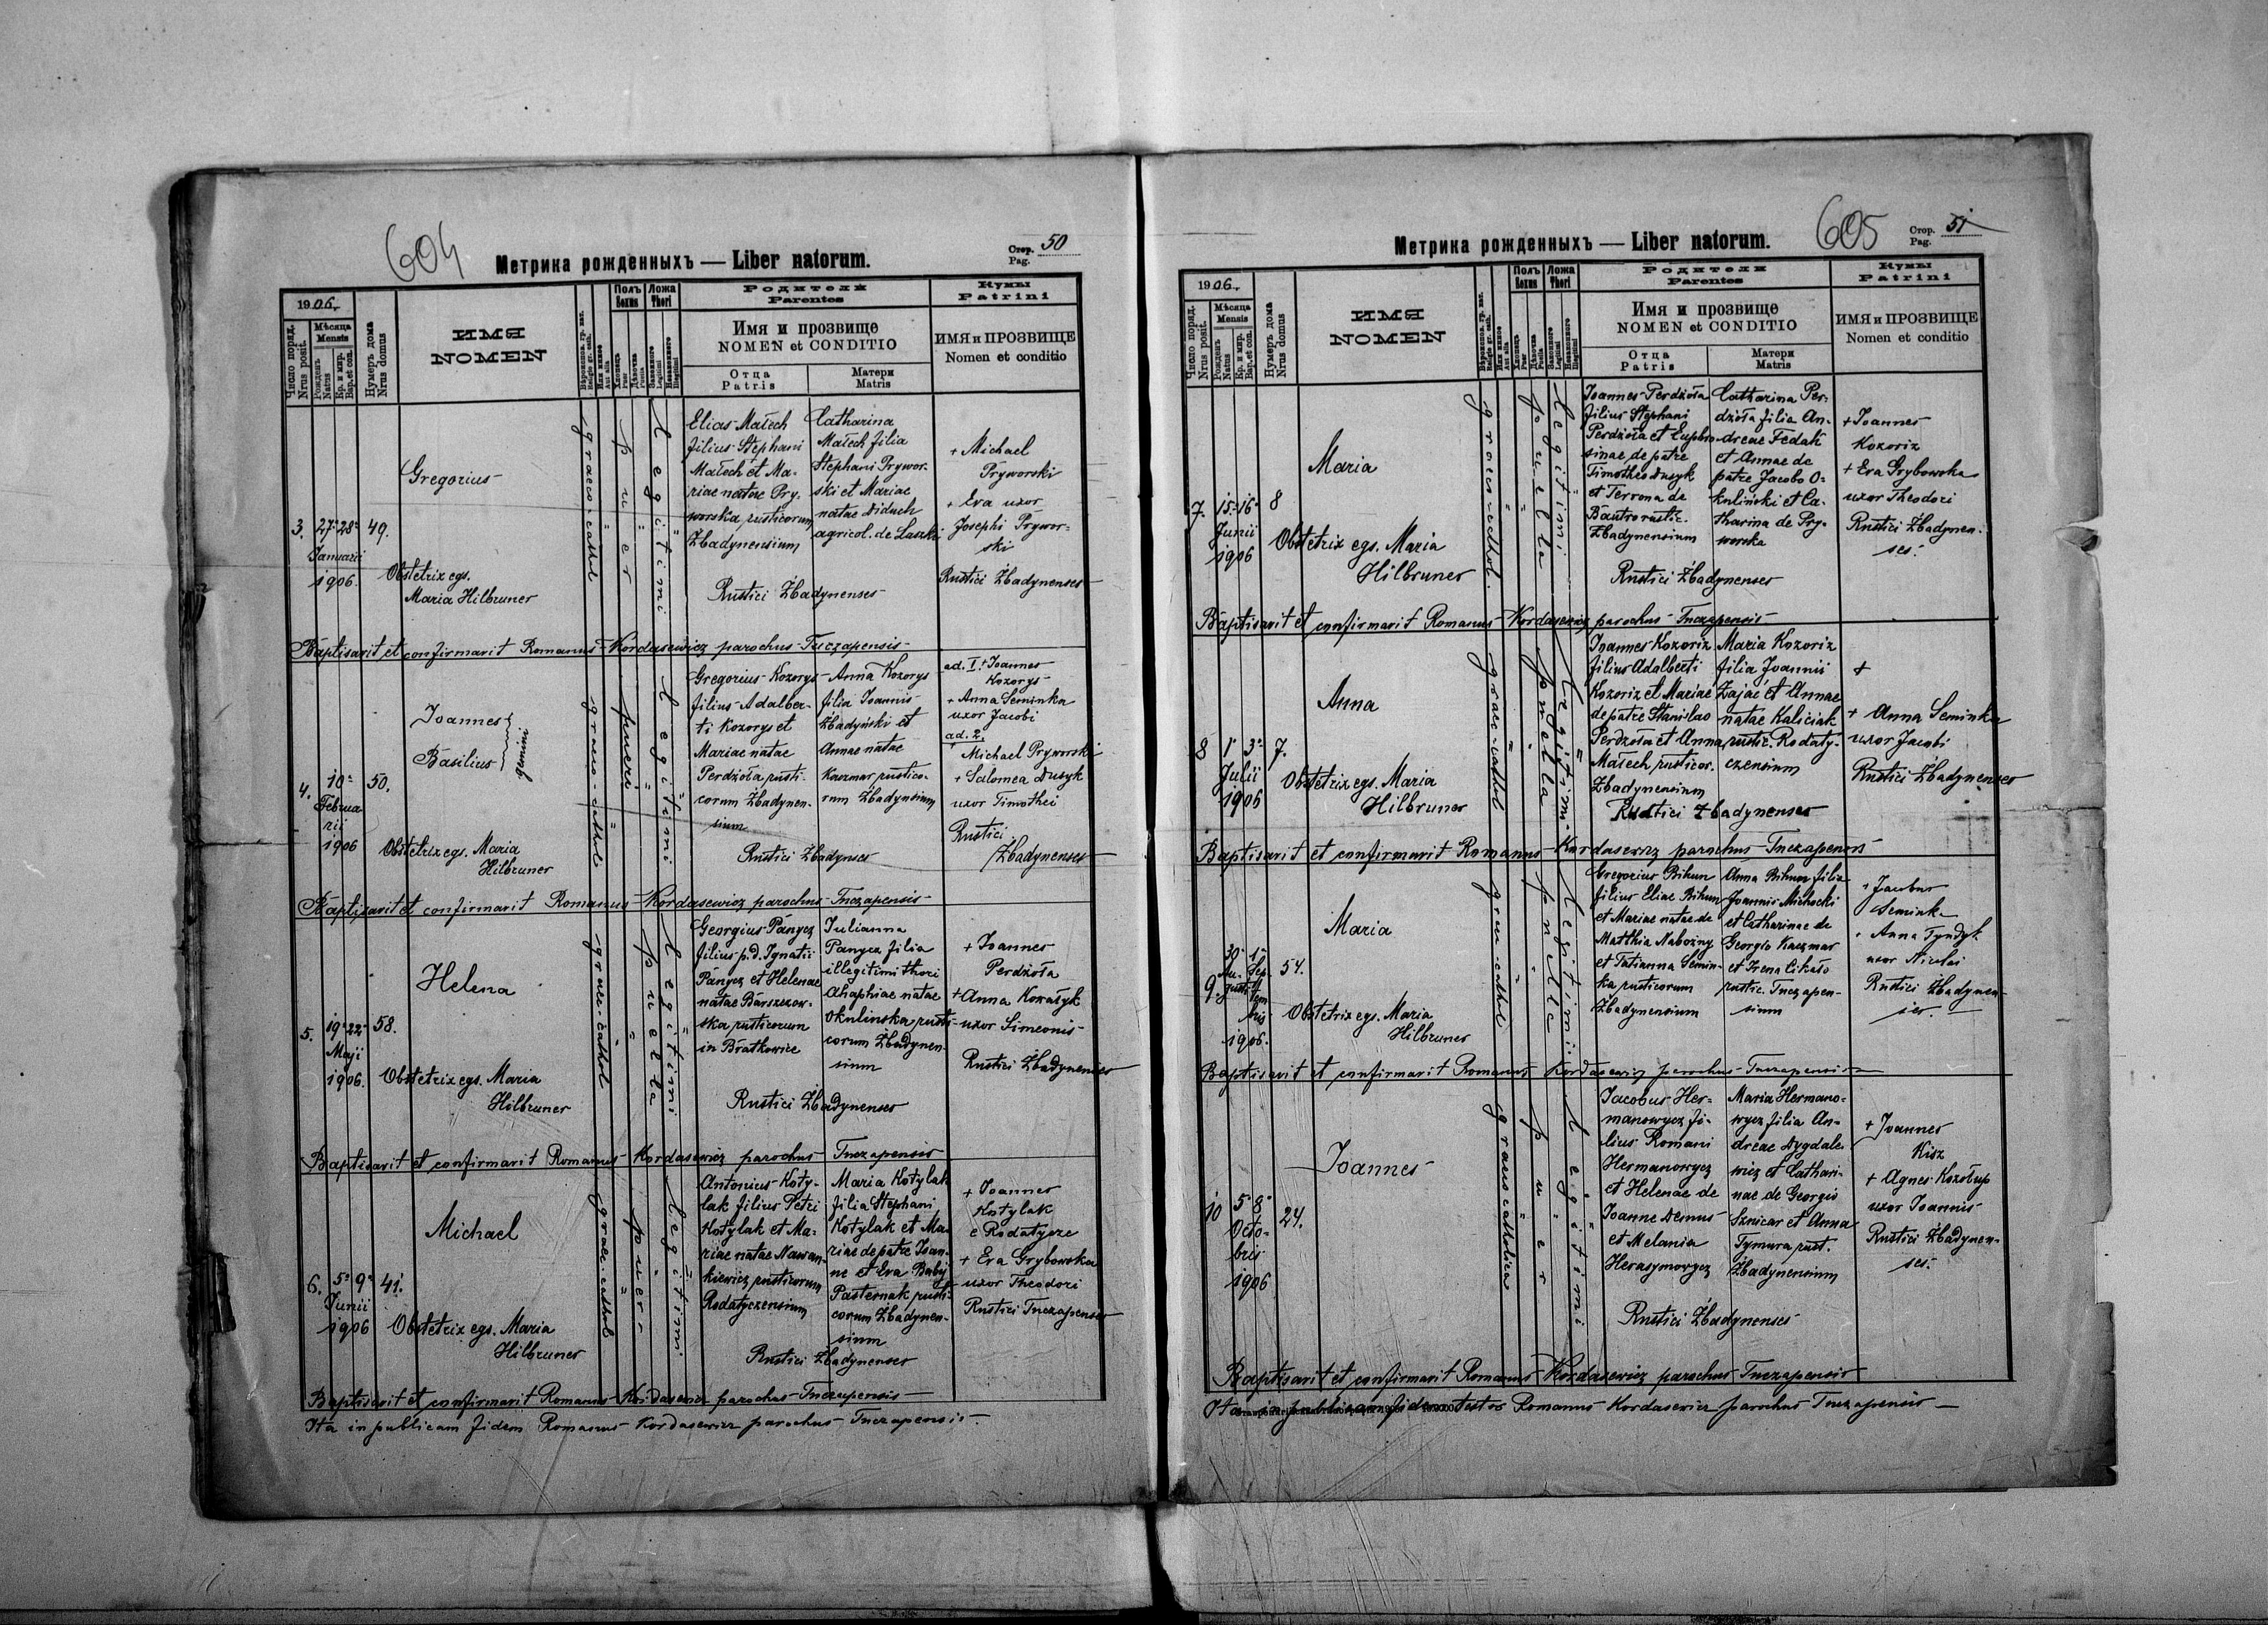 604
Метрика рожденныхъ — Liber natorum.
Стор. Pag. 50
1906.
Число поряд. Nrus posit.
Мѣсяца Mensis
Рожденъ Natus
Кр. и мир. Bap. et con.
Нумеръ дома Nrus domus
ИМЯ
NOMEN
Полъ Sexus
Ложа Thori
Родители
Parentes
Имя и прозвище
NOMEN et CONDITIO
Отца
Patris
Матери
Matris
Кумы
Patrini
ИМЯ и ПРОЗВИЩЕ
Nomen et conditio
3. 27. 28. 49.
Januarii
1906.
Gregorius
Obstetrix egs.
Maria Hilbruner
graeco-cathol
puer
legitimi
Elias Małech
filius Stephani
Małech et Ma-
riae natae Pry-
worska rusticorum
Żbadynensium
Catharina
Małech filia
Stephani Prywor-
ski et Mariae
natae Diduch
agricol. de Laszki
Rustici Żbadynenses
+ Michael
Pryworski
+ Eva uxor
Josephi Prywor-
ski
Rustici Żbadynenses
Baptisavit et confirmavit Romanus Kordasewicz parochus Tuczapensis
4. 10. 50.
Februa
rii
1906
Joannes
Basilius
gemini
Obstetrix egs. Maria
Hilbruner
graeco-cathol
pueri
legitimi
Gregorius Kozorys
filius Adalber-
ti Kozorys et
Mariae natae
Perdżoła rusti-
corum Żbadynen-
sium
Anna Kozorys
filia Joannis
Żbadyński et
Annae natae
Kaczmar rustico-
rum Żbadynsium
Rustici Żbadynses
ad. I. + Joannes
Kozorys
+ Anna Seminka
uxor Jacobi
ad. 2.
Michael Pryworski
+ Salomea Dusyk
uxor Timothei
Rustici
Żbadynenses
Baptisavit et confirmavit Romanus Kordasewicz parochus Tuczapensis
5. 19. 22. 58.
Maji
1906.
Helena
Obstetrix egs. Maria
Hilbruner
graec. cathol
puella
legitimi
Georgius Panycz
filius p.d. Ignatii
Panycz et Helenae
natae Barszczow-
ska rusticorum
in Bratkowice
Julianna
Panycz filia
illegitimi thori
Ahaphiae natae
Okulinska rusti-
corum Żbadynen-
sium
Rustici Żbadynenses
+ Joannes
Perdżoła
+ Anna Kowałyk
uxor Simeonis
Rustici Żbadynenses
Baptisavit et confirmavit Romanus Kordasewicz parochus Tuczapensis
6. 5. 9. 41.
Junii
1906
Michael
Obstetrix egs. Maria
Hilbruner
graec. cathol
puer
legitimi
Antonius Koty-
lak filius Petri
Kotylak et Ma-
riae natae Nawan-
kiewicz rusticorum
Rodatyczensium
Maria Kotylak
filia Stephani
Kotylak et Ma-
riae de patre Joan-
ne et Eva Babij
Pasternak rusti-
corum Żbadynen-
sium
Rustici Żbadynenses
+ Joannes
Kotylak
e Rodatycze
+ Eva Grybowska
uxor Theodori
Rustici Tuczapenses
Baptisavit et confirmavit Romanus Kordasewicz parochus Tuczapensis
Ita in publicam fidem Romanus Kordasewicz parochus Tuczapensis.
605
Метрика рожденныхъ — Liber natorum.
Стор. Pag. 51
1906.
Число поряд. Nrus posit.
Мѣсяца Mensis
Рожденъ Natus
Кр. и мир. Bap. et con.
Нумеръ дома Nrus domus
ИМЯ
NOMEN
Полъ Sexus
Ложа Thori
Родители
Parentes
Имя и прозвище
NOMEN et CONDITIO
Отца
Patris
Матери
Matris
Кумы
Patrini
ИМЯ и ПРОЗВИЩЕ
Nomen et conditio
7. 15. 16. 8
Junii
1906
Maria
Obstetrix egs. Maria
Hilbruner
graeco-cathol.
puella
legitimi
Joannes Perdżoła
filius Stephani
Perdżoła et Euphro-
sinae de patre
Timotheo Dusyk
et Terrona de
Bautro rustic.
Żbadynensium
Catharina Per-
dżoła filia An-
dreae Fedak
et Annae de
patre Jacobo O-
kuliński et Ca-
tharina de Pry-
worska
Rustici Żbadynenses
+ Joannes
Kozoriz
+ Eva Grybowska
uxor Theodori
Rustici Żbadynen-
ses.
Baptisavit et confirmavit Romanus Kordasewicz parochus Tuczapensis
8 1. 3. 7.
Julii
1906
Anna
Obstetrix egs. Maria
Hilbruner
graec-cathol
puella
legitimi
Joannes Kozoriz
filius Adalberti
Kozoriz et Mariae
de patre Stanislao
Perdżoła et Anna
Małech rusticor.
Żbadynensium
Maria Kozoriz
filia Joannis
Zając et Annae
natae Kaliciak
rustic. Rodaty-
czensium
Rustici Żbadynenses
+
+ Anna Seminka
uxor Jacobi
Rustici Żbadynenses
Baptisavit et confirmavit Romanus Kordasewicz parochus Tuczapensis
9. 30. 1. 54.
Au- Sep-
gusti tem
bris
1906.
Maria
Obstetrix egs. Maria
Hilbruner
graec-cathol
puella
legitimi
Gregorius Bihun
filius Eliae Bihun
et Mariae natae de
Matthia Nabożny
et Tatianna Semin-
ka rusticorum
Żbadynensium
Anna Bihun filia
Joannis Michocki
et Catharinae de
Georgio Kaczmar
et Irena Cikało
rustic. Tuczapen-
sium
+ Jacobus
Seminka
+ Anna Tyndyk
uxor Nicolai
Rustici Żbadynen-
ses.
Baptisavit et confirmavit Romanus Kordasewicz parochus Tuczapensis
10 5. 8. 24.
Octo-
bris
1906
Joannes
graeco catholica
puer
legitimi
Jacobus Her-
manowycz fi-
lius Romani
Hermanowycz
et Helenae de
Joanne Demus
et Melania
Herasymowycz
Maria Hermano-
wycz filia An-
dreae Dygdale-
wicz et Cathari-
nae de Georgio
Sznicar et Anna
Tymura rust.
Żbadynensium
Rustici Żbadynenses
+ Joannes
Kisz
+ Agnes Kozołup
uxor Joannis
Rustici Żbadynen-
ses.
Baptisavit et confirmavit Romanus Kordasewicz parochus Tuczapensis
Ita in publicam fidem testor Romanus Kordasewicz parochus Tuczapensis